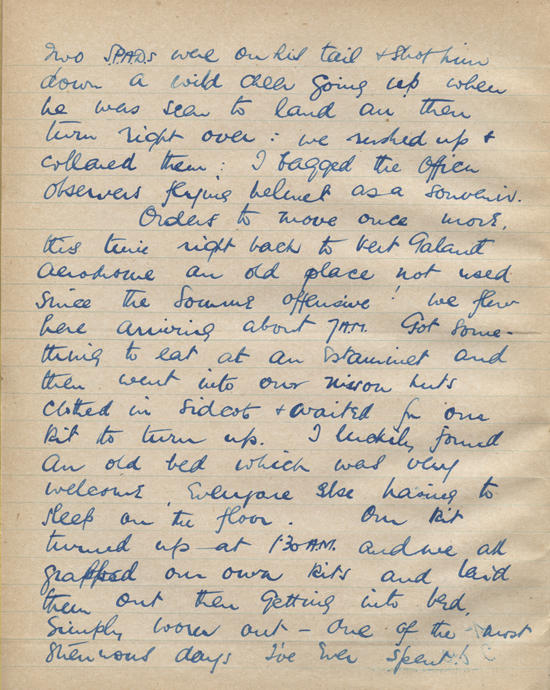 Two S.P.A.Ds were on his tail & shot him
down a wild cheer going up when
he was seen to land an then
turn right over: we rushed up &
collared them; I bagged the officer
observers flying helmet as a souvenir.
Orders to move once more,
this time right back to Vert Galant
aerodrome an old place not used
since the Somme offensive! we flew
here arriving about 7 AM. Got some-
thing to eat at an Estaminet and
then went into our nisson huts
clothed in Sidcots & waited for our
kit to turn up. I luckily found
an old bed which was very
welcome, Everyone else having to
sleep on the floor. Our kit
turned up at 1.30 AM. and we all
grabbed our own kits and laid
them out then getting into bed,
Simply worn out - One of the most
strenuous days I've Ever Spent.